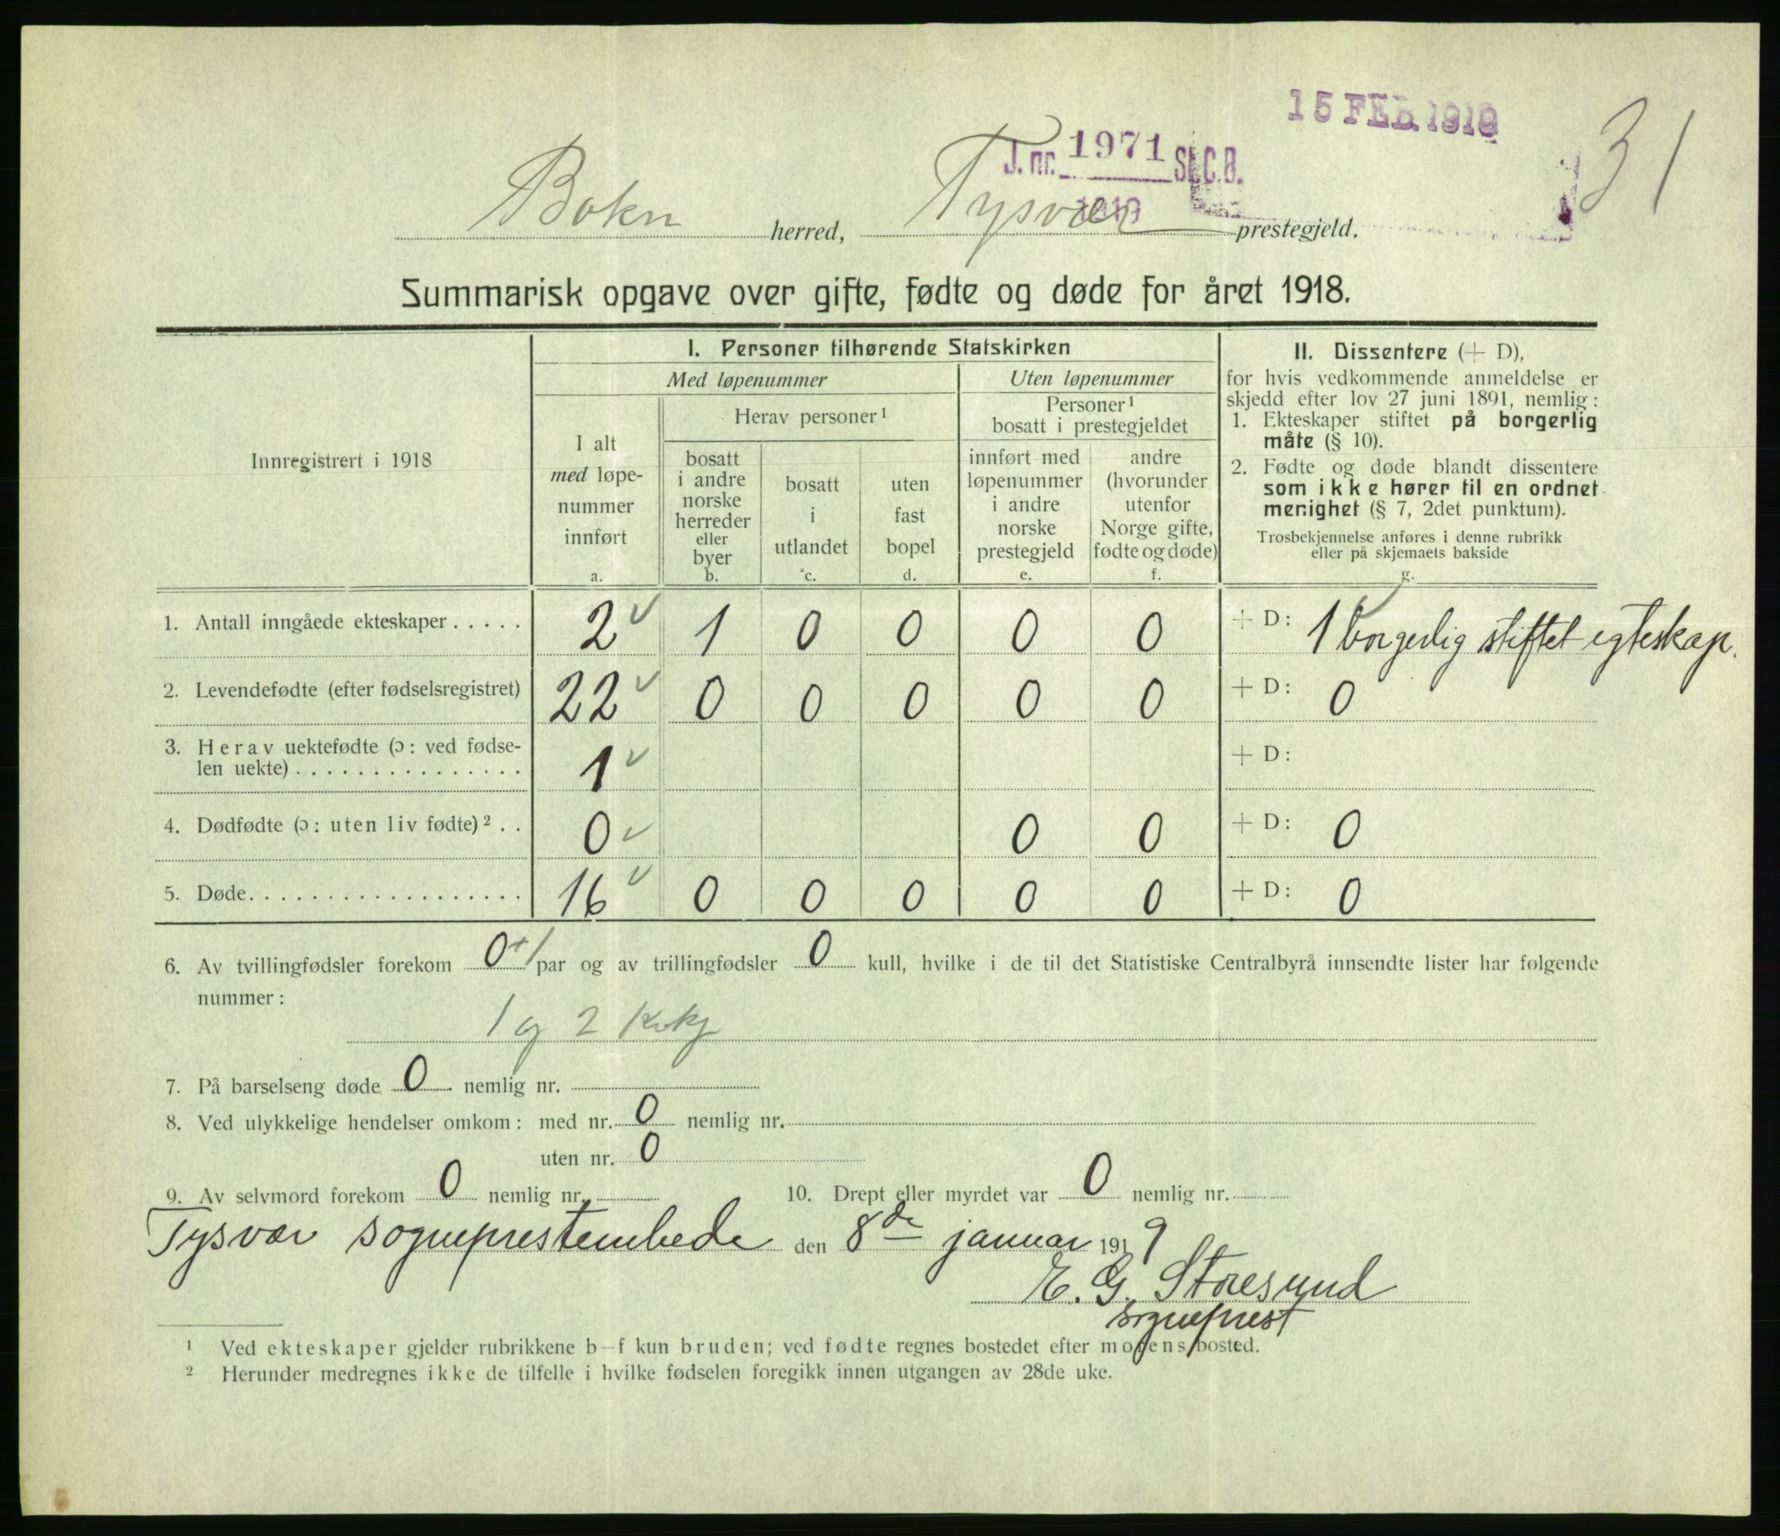 15 FEB. 1919
31
J. nr. 1971 St. C. B.
1919
Bokn herred, Tysvær prestegjeld.
Summarisk opgave over gifte, fødte og døde for året 1918.
Innregistrert i 1918
I. Personer tilhørende Statskirken
Med løpenummer
Uten løpenummer
I alt
med løpe-
nummer
innført
a.
Herav personer¹
bosatt
i andre
norske
herreder
eller
byer
b.
bosatt
i
utlandet
c.
uten
fast
bopel
d.
Personer¹
bosatt i prestegjeldet
innført med
løpenummer
i andre
norske
prestegjeld
e.
andre
(hvorunder
utenfor
Norge gifte,
fødte og døde)
f.
II. Dissentere (+ D),
for hvis vedkommende anmeldelse er
skjedd efter lov 27 juni 1891, nemlig:
1. Ekteskaper stiftet på borgerlig
måte (§ 10).
2. Fødte og døde blandt dissentere
som ikke hører til en ordnet
menighet (§ 7, 2det punktum).
Trosbekjennelse anføres i denne rubrikk
eller på skjemaets bakside
g.
1. Antall inngåede ekteskaper . . . . . 2 ✓ 1 0 0 0 0 + D: 1 borgerlig stiftet egteskap.
2. Levendefødte (efter fødselsregistret) 22 ✓ 0 0 0 0 0 + D: 0
3. Herav uektefødte (ɔ: ved fødse-
len uekte) . . . . . . . . . . . . . . . 1 ✓ + D:
4. Dødfødte (ɔ: uten liv fødte)² . . 0 ✓ 0 0 + D: 0
5. Døde. . . . . . . . . . . . . . . . . . 16 ✓ 0 0 0 0 0 + D: 0
6. Av tvillingfødsler forekom 0+1 par og av trillingfødsler 0 kull, hvilke i de til det Statistiske Centralbyrå innsendte lister har følgende
nummer:
1 og 2 Kvkj
7. På barselseng døde 0 nemlig nr.
8. Ved ulykkelige hendelser omkom: med nr. 0 nemlig nr.
uten nr. 0
9. Av selvmord forekom 0 nemlig nr. 10. Drept eller myrdet var 0 nemlig nr.
Tysvær sogneprestembede den 8de januar 1919
E. G. Storesund
sogneprest
¹ Ved ekteskaper gjelder rubrikkene b–f kun bruden; ved fødte regnes bostedet efter morens bosted.
² Herunder medregnes ikke de tilfelle i hvilke fødselen foregikk innen utgangen av 28de uke.